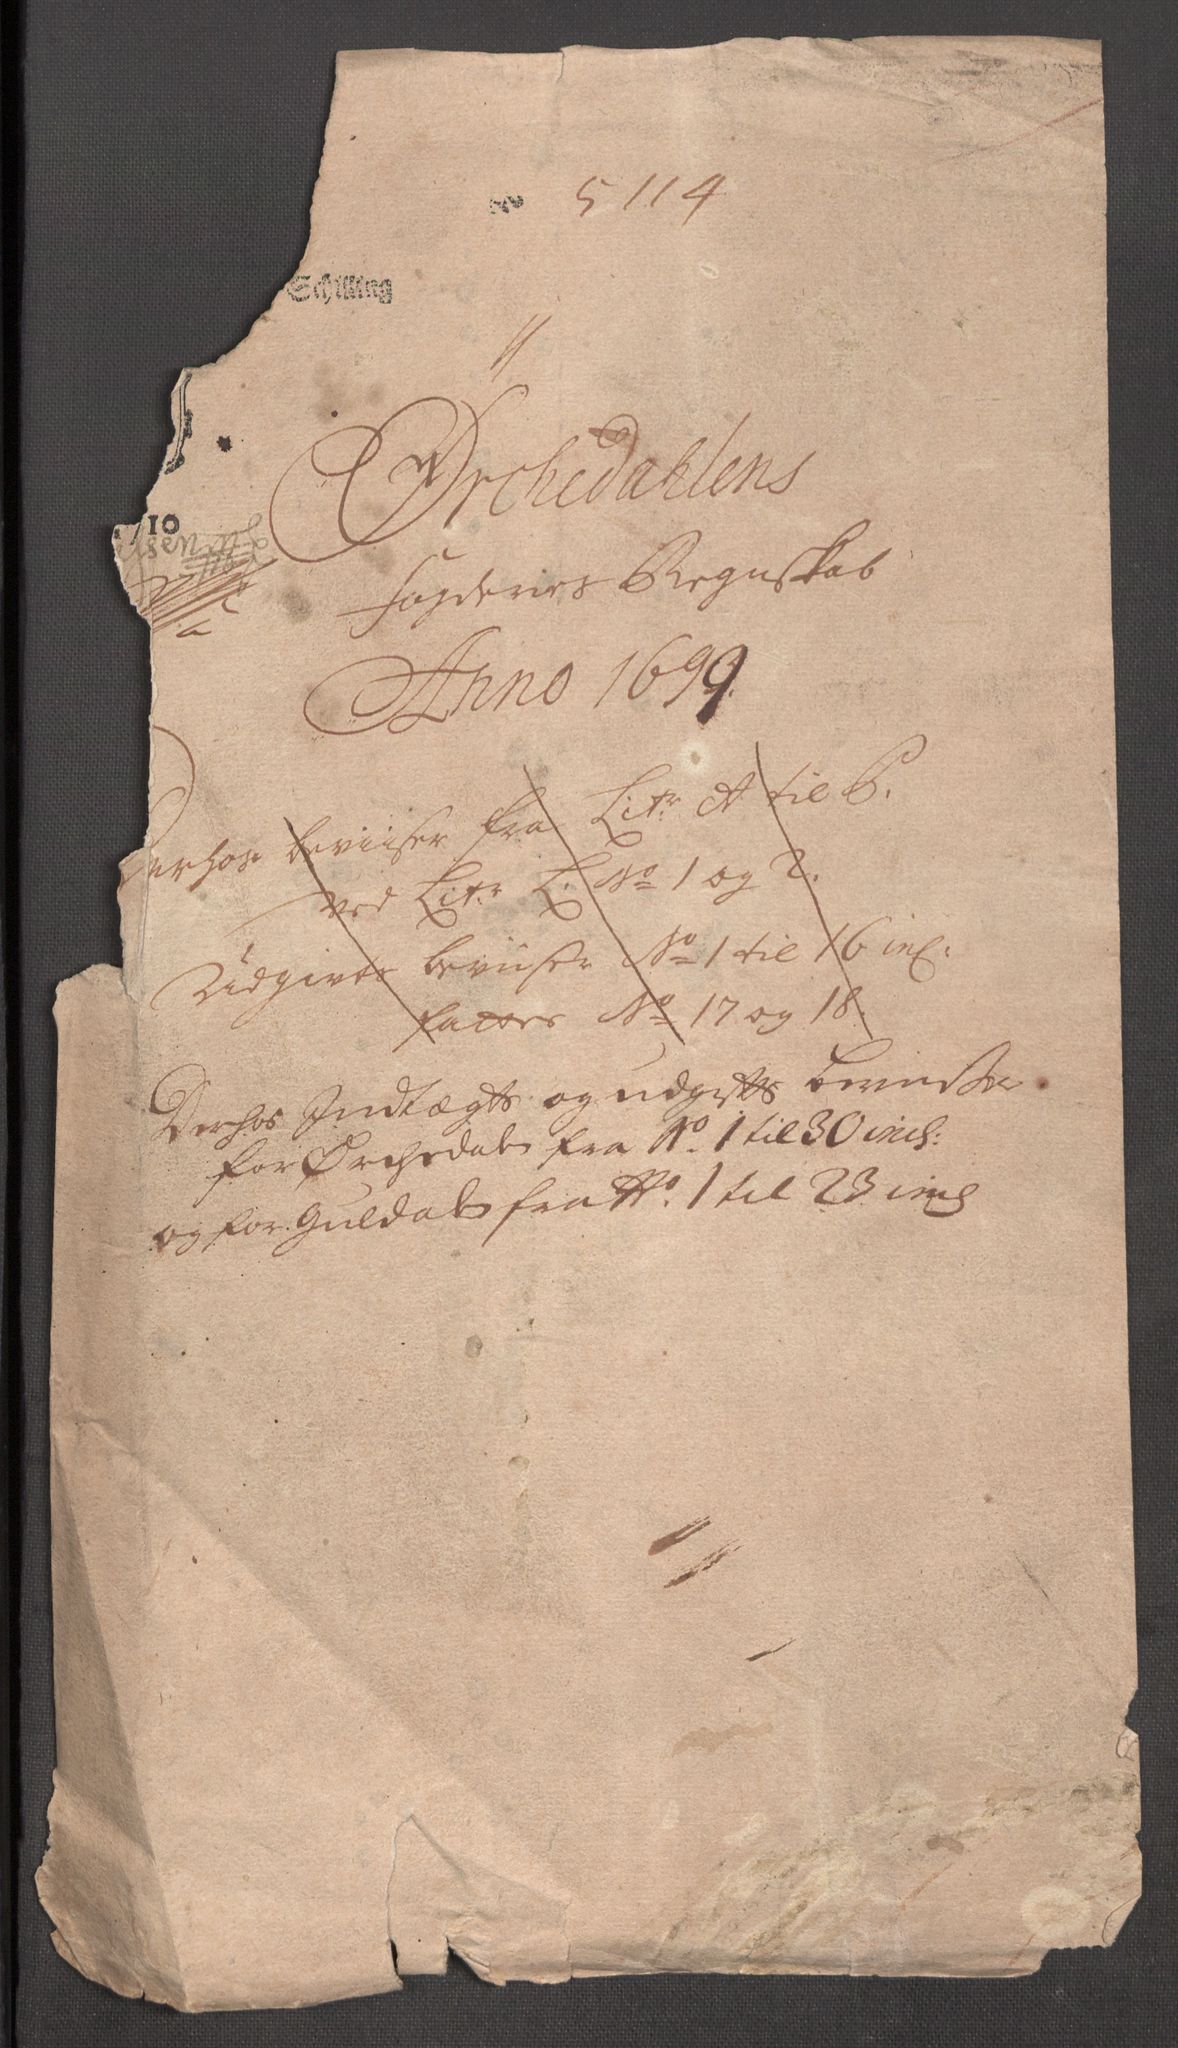 No 5114
Schilling
Ørchedahlens
710
fogderies Regnskab
Anno 1699.
Derhos beviiser fra Litr A til B.
ved Litr L. No 1 og 2.
Udgives beviiser No 1 til 16 incl.
No 17 og 18.
Derhos Indtægts og udgifts beviiser
for Ørchedahl fra No. 1 til 30 incl:
og for Guldahl fra No. 1 til 23 incl